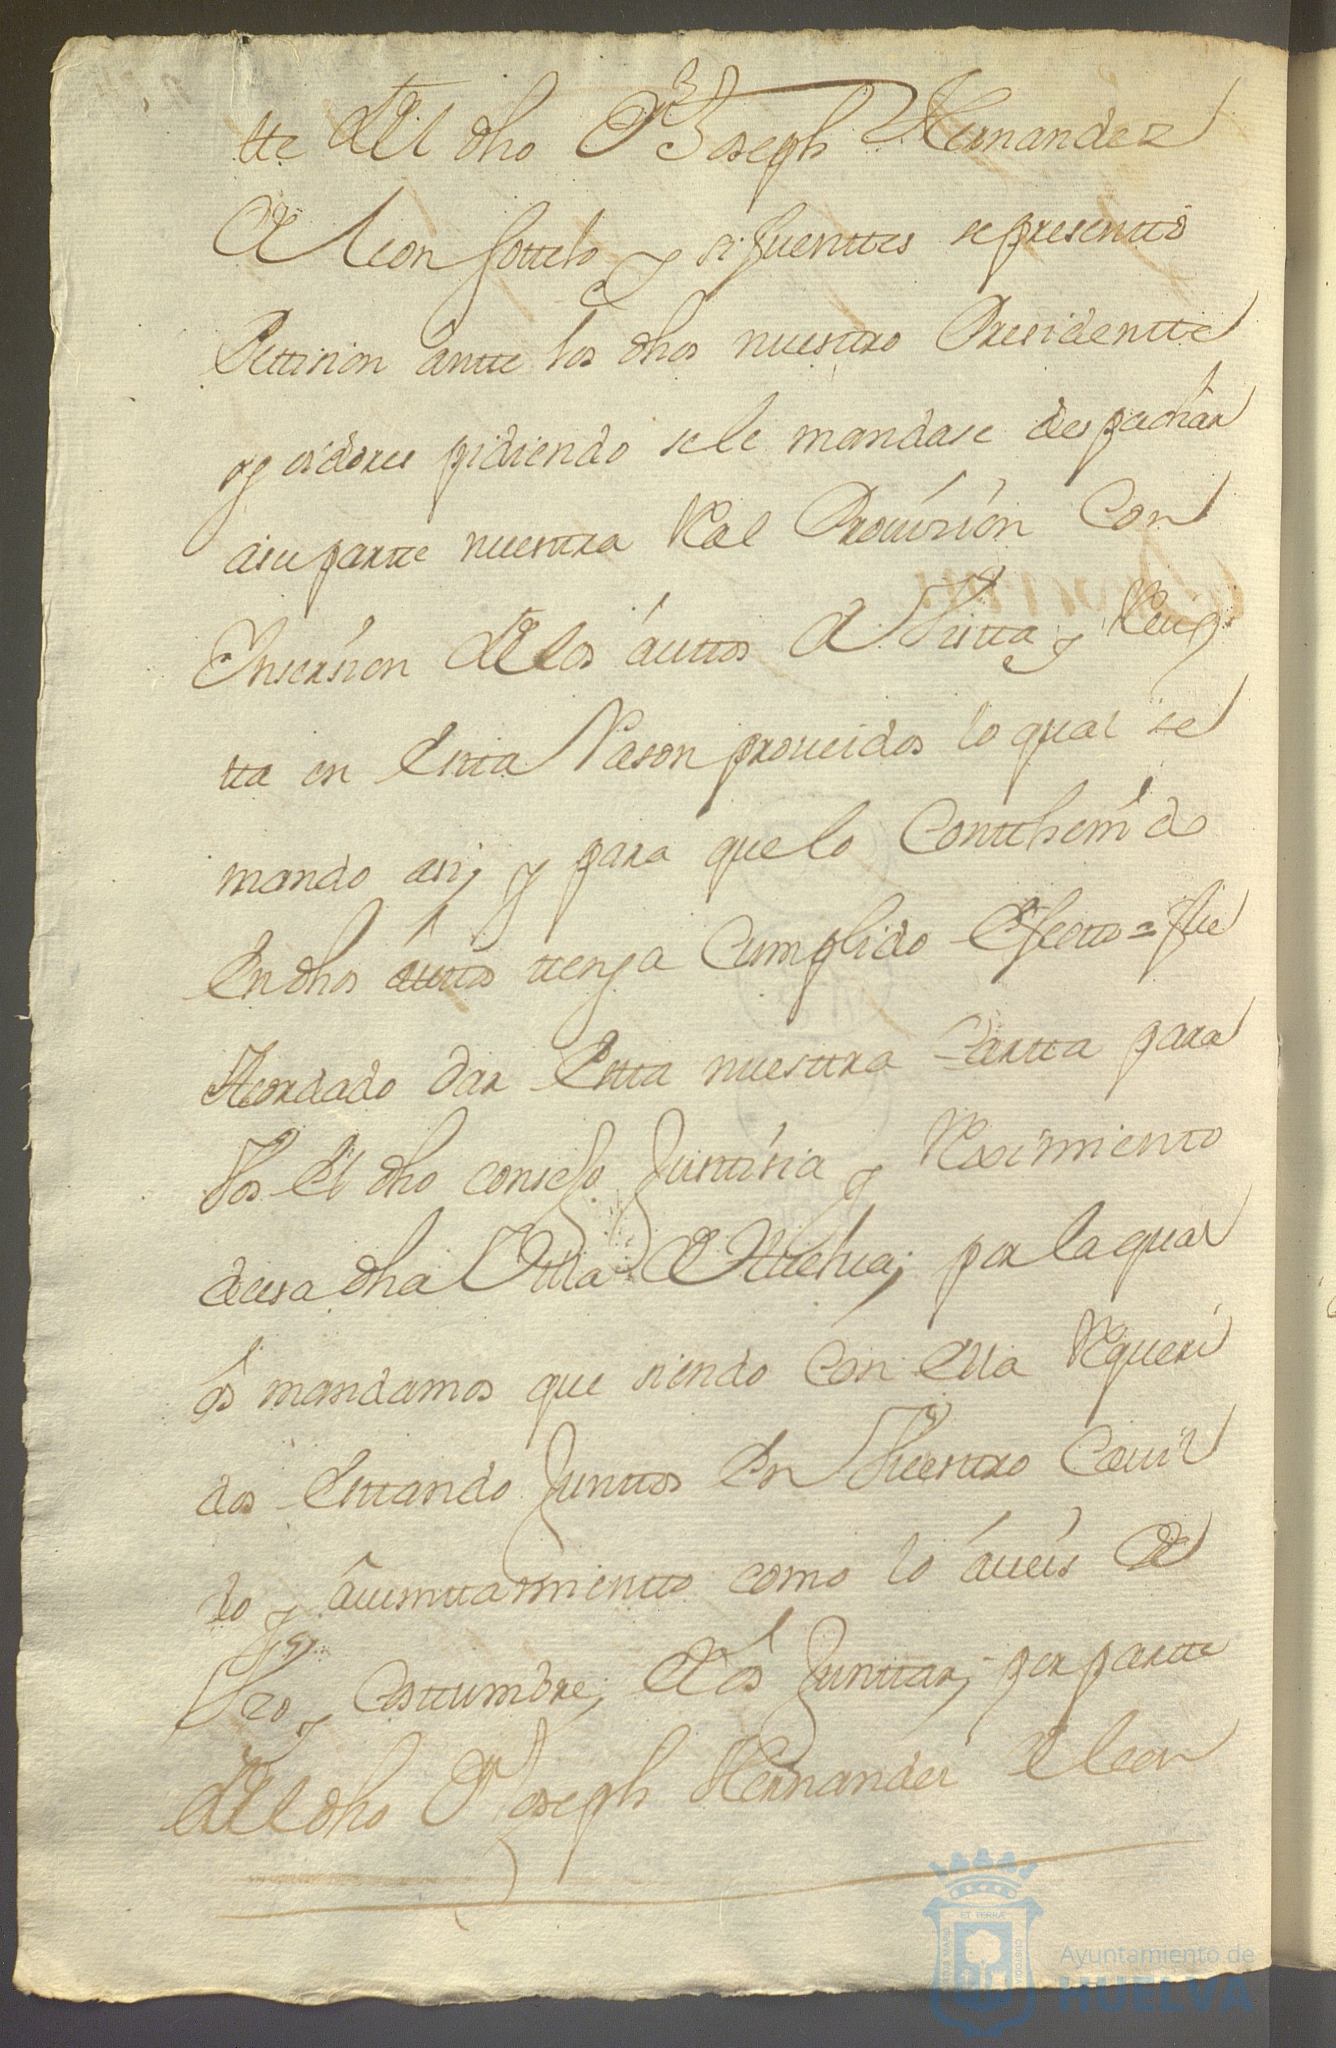 tte del dho Dn Joseph Hernandez
de leon sottelo y sifuenttes se presenttó
Pettision ántte los dhos nuestro Presidentte
y oidores pidiendo se le mandase despachár
a su partte nuestra Ral Prouísión Con
Insersíon de los áuttos de Vistta, y Reuis
tta en Estta Rason proueidos lo qual se
mando asi; y para que lo Conttheni do
En dhos áuttos tenga Cumplido Efectto = fue
Acordado dar Estta nuesttra Cartta para
Vos El dho consejo Justtísia y Reximiento
de esa dha Villa de Huelua; por la qual
os mandamos que siendo Con Ella Requeri
dos Esttando Junttos En Vuesttro Cauil
do y áiunttamientto como lo áueís de
Vso, y Costtumbre; de os Junttar; por partte
del dho Dn Joseph Hernandez de leon
Ayuntamiento de
HUELVA